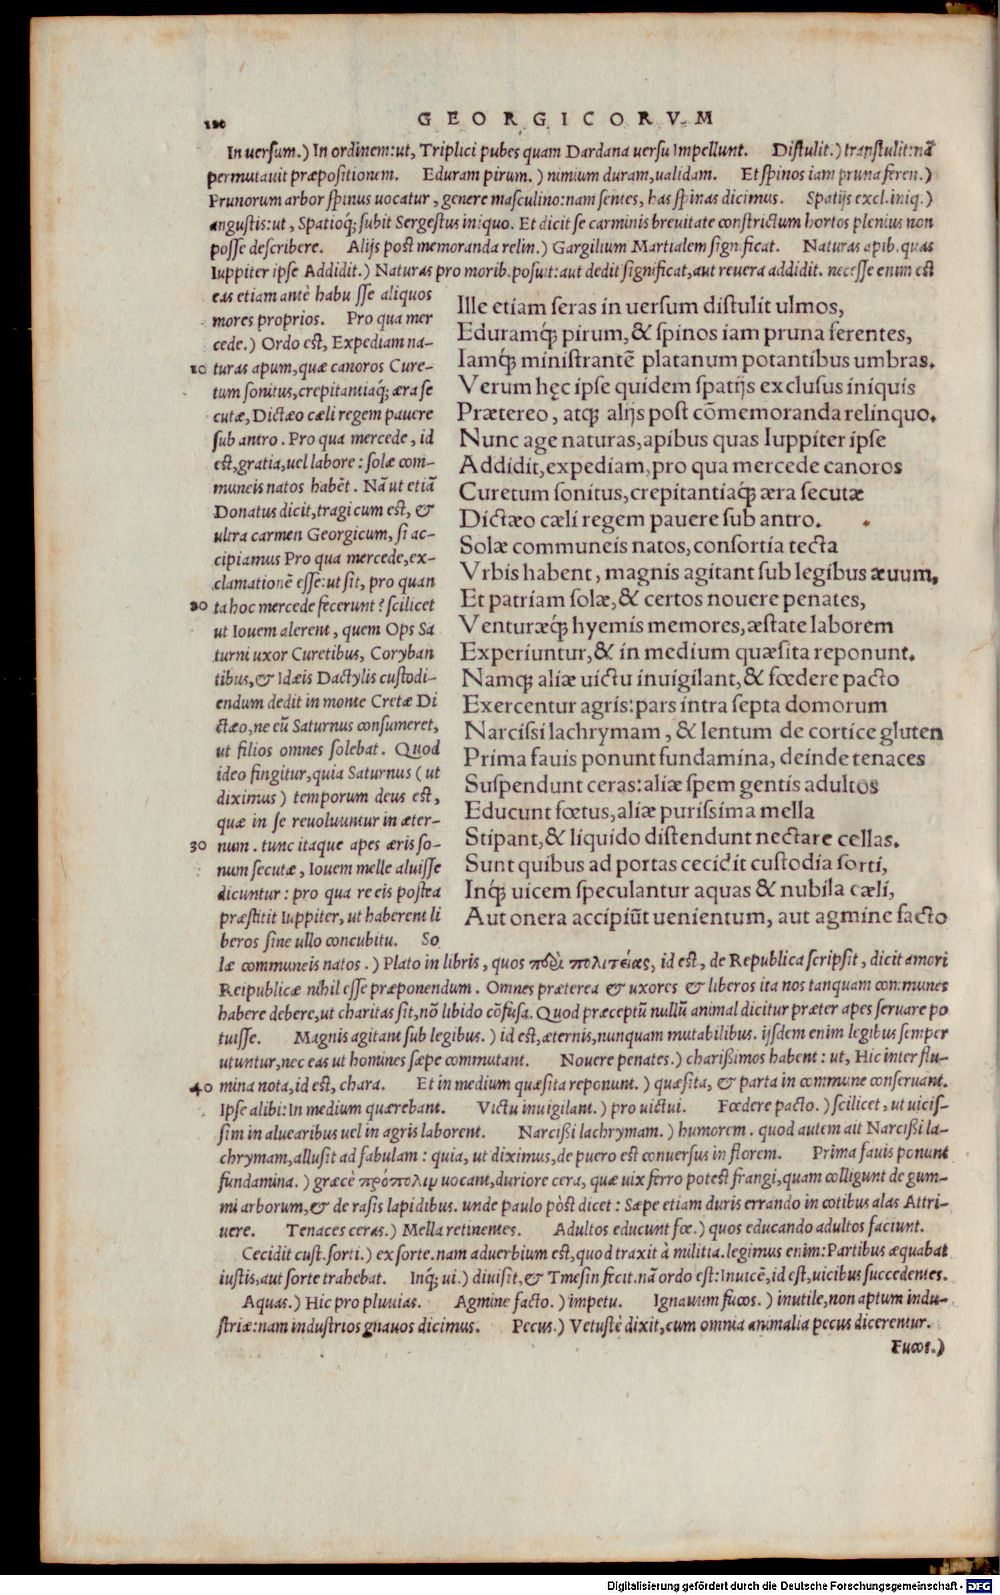 GEORGICORVM
In uersum.) In ordinem: ut, Triplici pubes quam Dardana uersu Impellunt. Distulit.) transtulit: nā
permutauit præpositionem. Eduram pirum.) nimium duram, ualidam. Et spinos iam pruna feren.)
Prunorum arbor spinus uocatur, genere masculino: nam sentes, has spinas dicimus. Spatijs excl. iniq.)
angustis: ut, Spatioq́; subit Sergestus iniquo. Et dicit se carminis breuitate constrictum hortos plenius non
posse describere. Alijs post memoranda relin.) Gargilium Martialem significat. Naturas apib. quas
Iuppiter ipse Addidit.) Naturas pro morib. posuit: aut dedit significat, aut reuera addidit. necesse enim est
eas etiam antè habu sse aliquos
mores proprios. Pro qua mer
cede.) Ordo est, Expediam na-
10 turas apum, quæ canoros Cure-
tum sonitus, crepitantiaq́; æra se
cutæ, Dictæo cæli regem pauere
sub antro. Pro qua mercede, id
est, gratia, uel labore: solæ com-
muneis natos habēt. Nā ut etiā
Donatus dicit, tragicum est, &
ultra carmen Georgicum, si ac-
cipiamus Pro qua mercede, ex-
clamationē esse: ut sit, pro quan
20 ta hoc mercede fecerunt? scilicet
ut Iouem alerent, quem Ops Sa
turni uxor Curetibus, Coryban
tibus, & Idæis Dactylis custodi-
endum dedit in monte Cretæ Di
ctæo, ne eū Saturnus consumeret,
ut filios omnes solebat. Quod
ideo fingitur, quia Saturnus (ut
diximus) temporum deus est,
quæ in se reuoluuntur in æter-
30 num. tunc itaque apes æris so-
num secutæ, Iouem melle aluisse
dicuntur: pro qua re eis postea
præstitit Iuppiter, ut haberent li
beros sine ullo concubitu. So
Ille etiam seras in uersum distulit ulmos,
Eduramq́; pirum, & spinos iam pruna ferentes,
Iamq́; ministrantē platanum potantibus umbras.
Verum hęc ipse quidem spatijs exclusus iniquis
Prætereo, atq; alijs post cōmemoranda relinquo.
Nunc age naturas, apibus quas Iuppiter ipse
Addidit, expediam, pro qua mercede canoros
Curetum sonitus, crepitantiaq́; æra secutæ
Dictæo cæli regem pauere sub antro.
Solæ communeis natos, consortia tecta
Vrbis habent, magnis agitant sub legibus æuum,
Et patriam solæ, & certos nouere penates,
Venturæq́; hyemis memores, æstate laborem
Experiuntur, & in medium quæsita reponunt.
Namq; aliæ uictu inuigilant, & fœdere pacto
Exercentur agris: pars intra septa domorum
Narcissi lachrymam, & lentum de cortice gluten
Prima fauis ponunt fundamina, deinde tenaces
Suspendunt ceras: aliæ spem gentis adultos
Educunt fœtus, aliæ purissima mella
Stipant, & liquido distendunt nectare cellas.
Sunt quibus ad portas cecidit custodia sorti,
Inq́; uicem speculantur aquas & nubila cæli,
Aut onera accipiūt uenientum, aut agmine facto
læ communeis natos.) Plato in libris, quos πεὶ πολιτείας, id est, de Republica scripsit, dicit amori
Reipublicæ nihil esse præponendum. Omnes præterea & uxores & liberos ita nos tanquam communes
habere debere, ut charitas sit, nō libido cōfusa. Quod præceptū nullū animal dicitur præter apes seruare po
tuisse. Magnis agitant sub legibus.) id est, æternis, nunquam mutabilibus. ijsdem enim legibus semper
utuntur, nec eas ut homines sæpe commutant. Nouere penates.) charißimos habent: ut, Hic inter flu-
40 mina nota, id est, chara. Et in medium quæsita reponunt.) quæsita, & parta in commune conseruant.
Ipse alibi: In medium quærebant. Victu inuigilant.) pro uictui. Fœdere pacto.) scilicet, ut uicis-
sim in aluearibus uel in agris laborent. Narcißi lachrymam.) humorem. quod autem ait Narcißi la-
chrymam, allusit ad fabulam: quia, ut diximus, de puero est conuersus in florem. Prima fauis ponunt
fundamina.) græcè πρόπολιν uocant, duriore cera, quæ uix ferro potest frangi, quam colligunt de gum-
mi arborum, & de rasis lapidibus. unde paulo pòst dicet: Sæpe etiam duris errando in cotibus alas Attri-
uere. Tenaces ceras.) Mella retinentes. Adultos educunt fœ.) quos educando adultos faciunt.
Cecidit cust. sorti.) ex sorte. nam aduerbium est, quod traxit à militia. legimus enim: Partibus æquabat
iustis, aut sorte trahebat. Inq́; ui.) diuisit, & Tmesin fecit. nā ordo est: Inuicē, id est, uicibus succedentes.
Aquas.) Hic pro pluuias. Agmine facto.) impetu. Ignauum fucos.) inutile, non aptum indu-
striæ: nam industrios gnauos dicimus. Pecus.) Vetustè dixit, cum omnia animalia pecus dicerentur.
Fucos.)
Digitalisierung gefördert durch die Deutsche Forschungsgemeinschaft - DFG